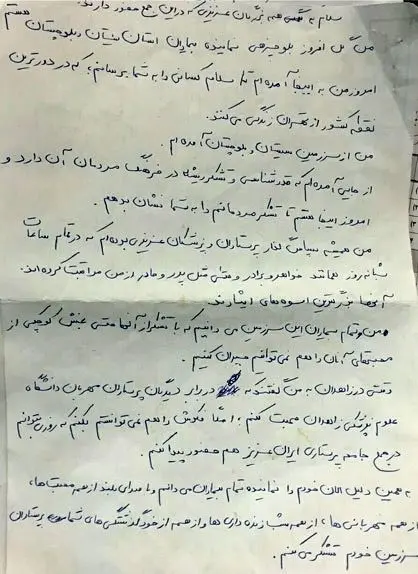 سلام به همه بزرگان عزیزی که در این جمع حضور دارند.
من گل افروز بلوچزهی نماینده بیماران استان سیستان و بلوچستان هستم
امروز من به اینجا آمده ام تا سلام کسانی را به شما برسانم؛ که در دورترین
نقطه کشور از تهران زندگی می کنند.
من از سرزمین سیستان و بلوچستان آمده ام.
از جایی آمده ام که قدرشناسی و تشکر ریشه در فرهنگ مردمان آن دارد و
امروز اینجا هستم تا تشکر مردمانم را به شما نشان بدهم.
من همیشه سپاس گذار پرستاران و پزشکان عزیزی بوده ام که در تمام ساعات
شبانه روز همانند خواهر و برادر و حتی مثل پدر و مادر از من مراقبت کرده اند.
آنها بزرگترین اسوه های ایثارند.
من و تمام بیماران این سرزمین می دانیم که با تشکر از آنها حتی بخش کوچکی از
محبتهای آنان را هم نمی توانیم جبران کنیم.
وقتی در زاهدان به من گفتند که در برابر دیدگان پرستاران مهربان دانشگاه
علوم پزشکی زاهدان صحبت کنم؛ اصلا فکرش را هم نمی توانستم بکنم که روزی بتوانم
در جمع جامعه پرستاری ایران عزیز هم حضور پیدا کنم.
به همین دلیل الان خودم را نماینده تمام بیماران می دانم و با صدای بلند از همه محبت ها،
از همه مهربانی ها، از همه شب زنده داری ها و از همه از خودگذشتگی های تمام پرستاران
سرزمین خودم تشکر می کنم.